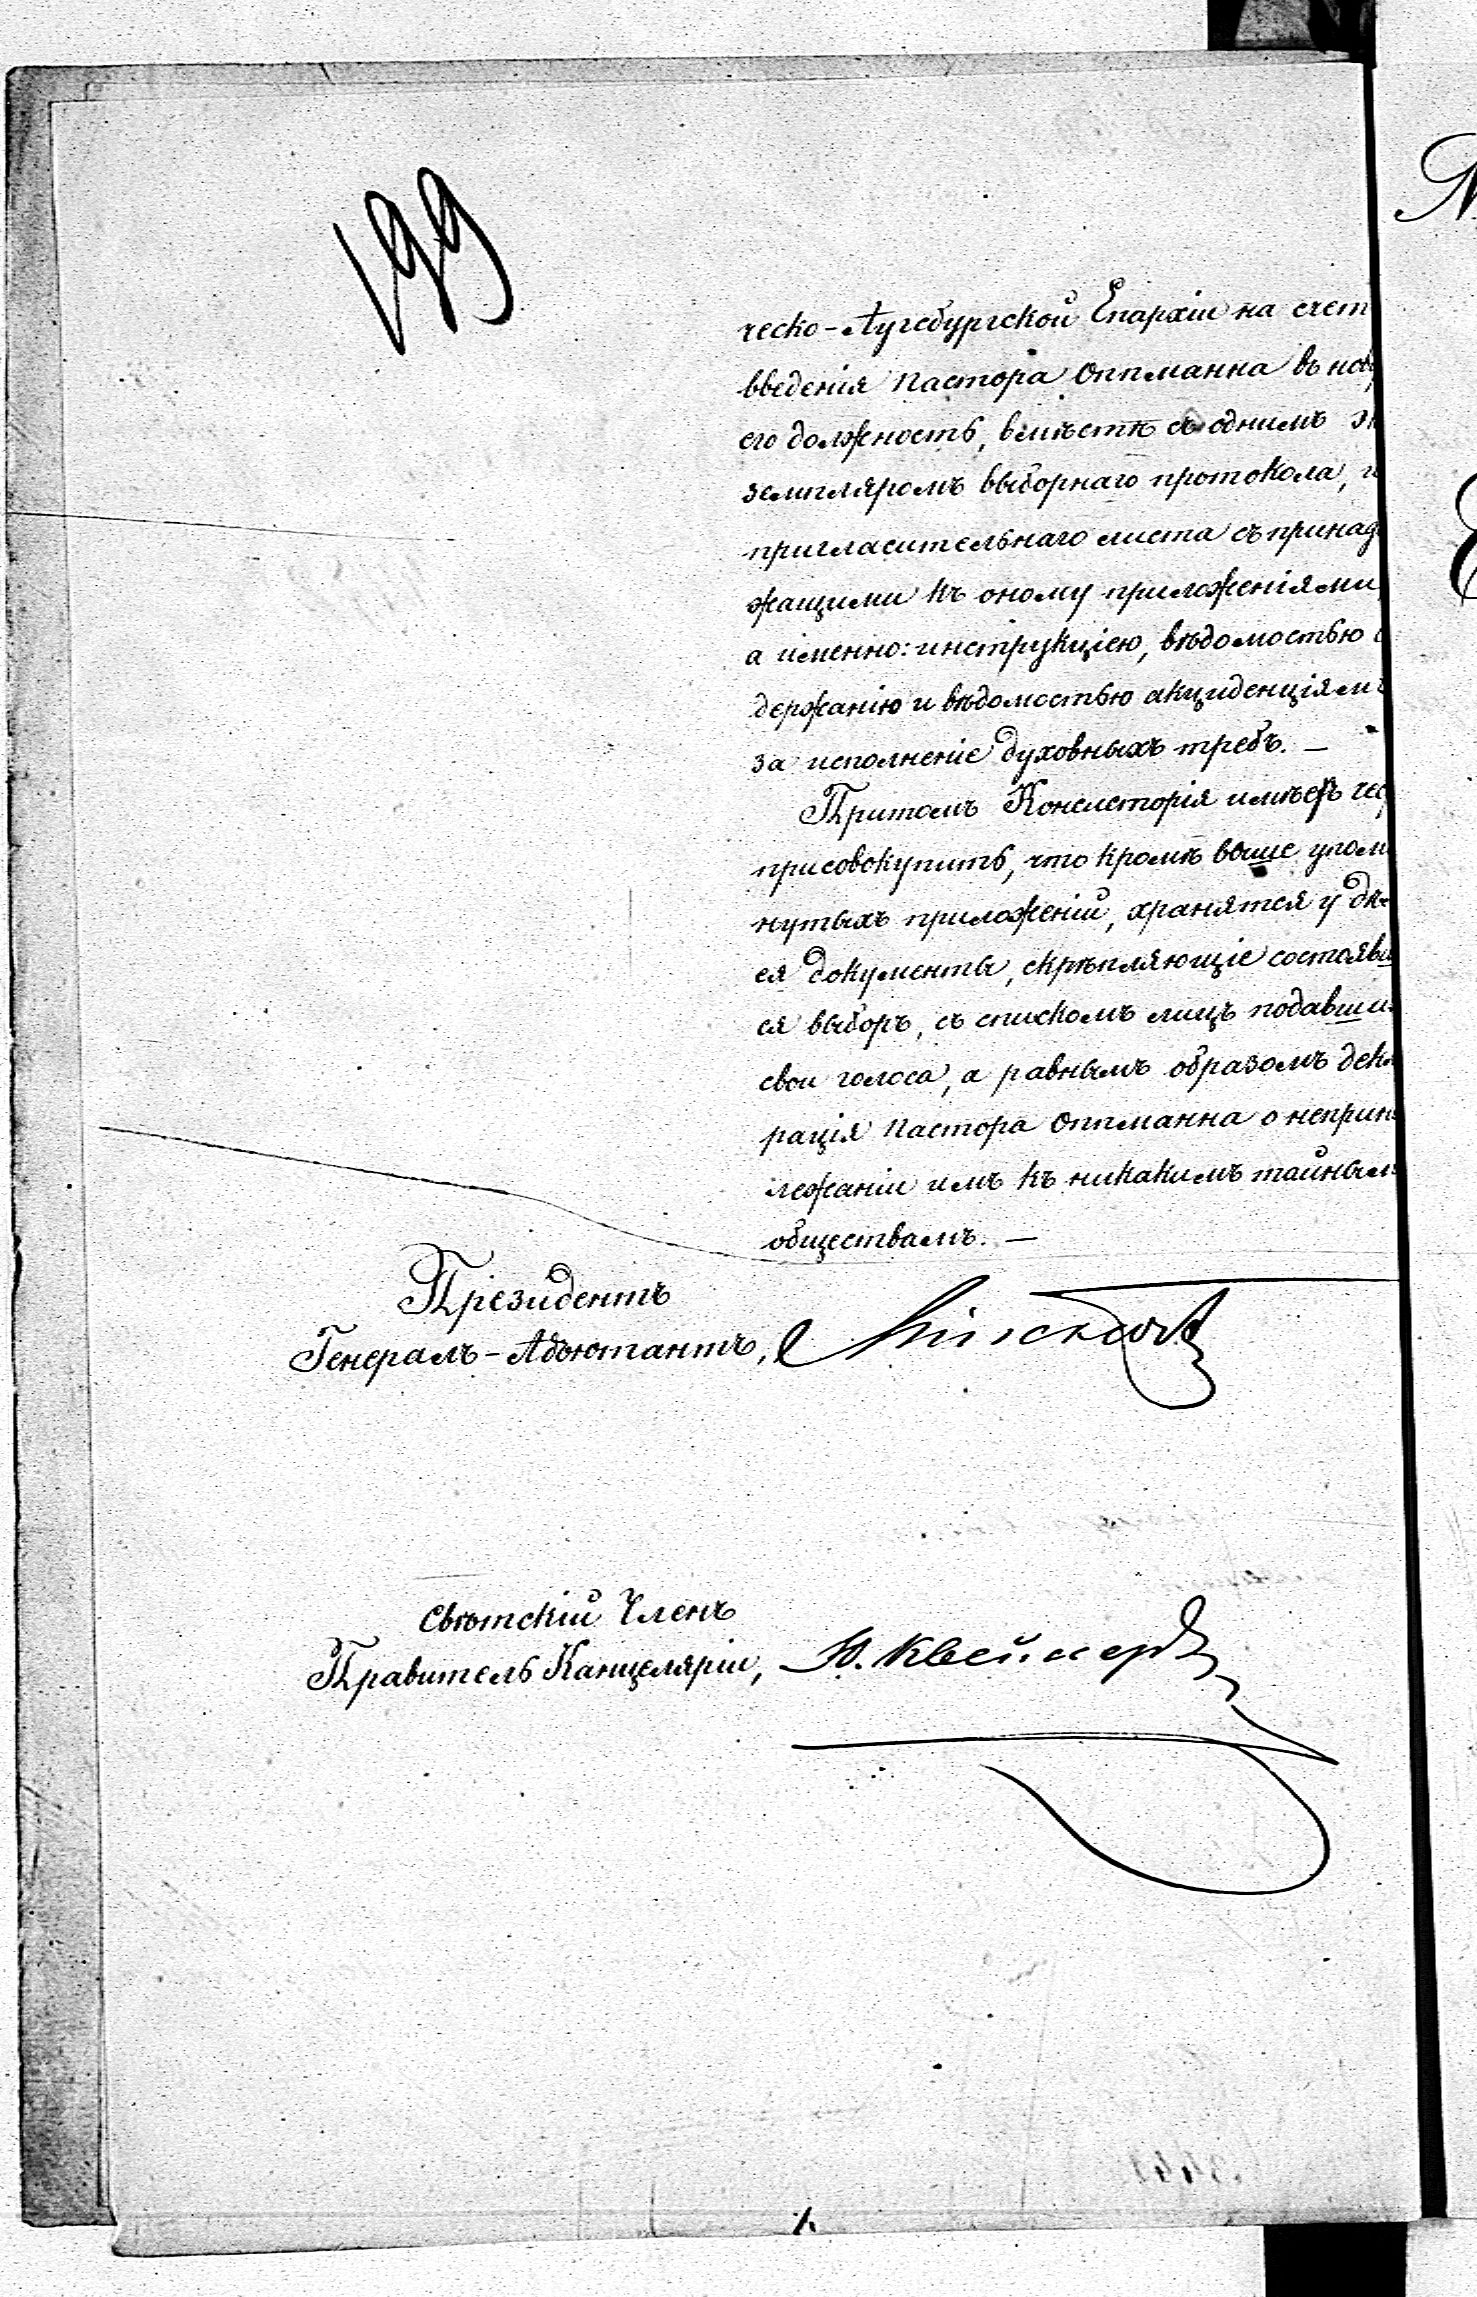 199
ческо-Аугсбургской Епархіи на счет
введенія Пастора Оппманна въ нов
его должность, вмѣстѣ съ однимъ эк
земпляромъ выборнаго протокола, и
пригласительнаго листа съ принад
жащими къ оному приложеніями,
а именно: инструкціею, вѣдомостью
держанію и вѣдомостью акциденціямъ
за исполненіе духовныхъ требъ. —
Притомъ Консисторія имѣетъ чес
присовокупить, что кромѣ выше упомя
нутыхъ приложеній, хранятся у дѣ-
ея документы, скрѣпляющіе состоявш
ся выборъ, съ спискомъ лицъ подавши
свои голоса, а равнымъ образомъ дек
рація Пастора Оппманна о неприн
лежаніи имъ къ никакимъ тайным
обществамъ. —
Президентъ
Генералъ-Адъютантъ,
Свѣтскій Членъ
Правитель Канцеляріи,